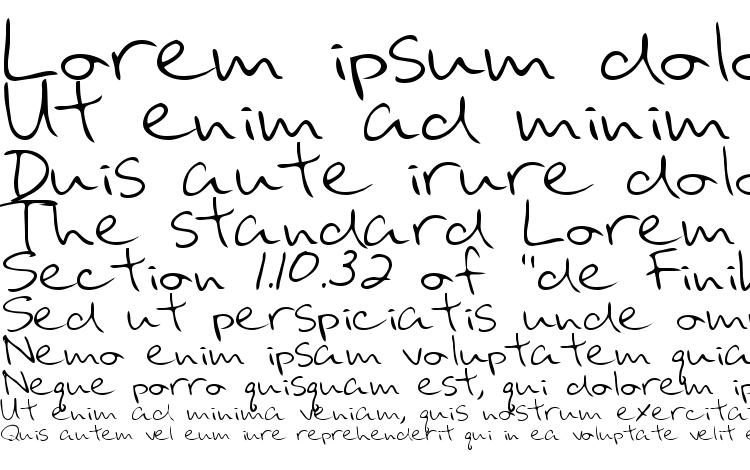 Lorem ipsum dolo
Ut enim ad minim
Duis aute irure dolo
The standard Lorem
Section 1.10.32 of "de Finib
Sed ut perspiciatis unde omn
Nemo enim ipsam voluptatem quia
Neque porro quisquam est, qui dolorem ip
Ut enim ad minima veniam, quis nostrum exercitat
Quis autem vel eum iure reprehenderit qui in ea voluptate velit e